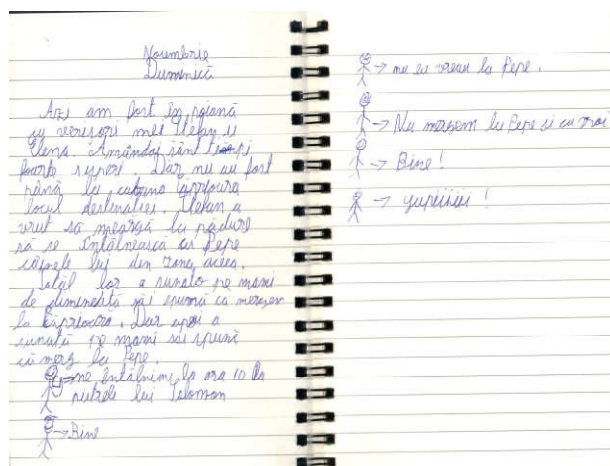 Noiembrie
Duminică
Azi am fost în poiană
cu verișorii mei Ștefan și
Elena. Amândoi sânt
foarte superi. Dar nu au fost
până la cabana Căprioara
locul destinației. Ștefan a
vrut să meargă la pădure
să se întâlnească cu Pepe
câinele lui din zona aceea.
Tatăl lor a sunato pe mami
de dimineață săi spună ca mergem
la Căprioara. Dar apoi a
sunată pe mami săi spună
că merg la Pepe.
→ ne întâlnim la ora 10 la
pietrele lui Solomon
→ Bine
→ nu eu vreau la Pepe.
→ Nu mergem la Pepe și cu voi
→ Bine!
→ yupiiiiii!